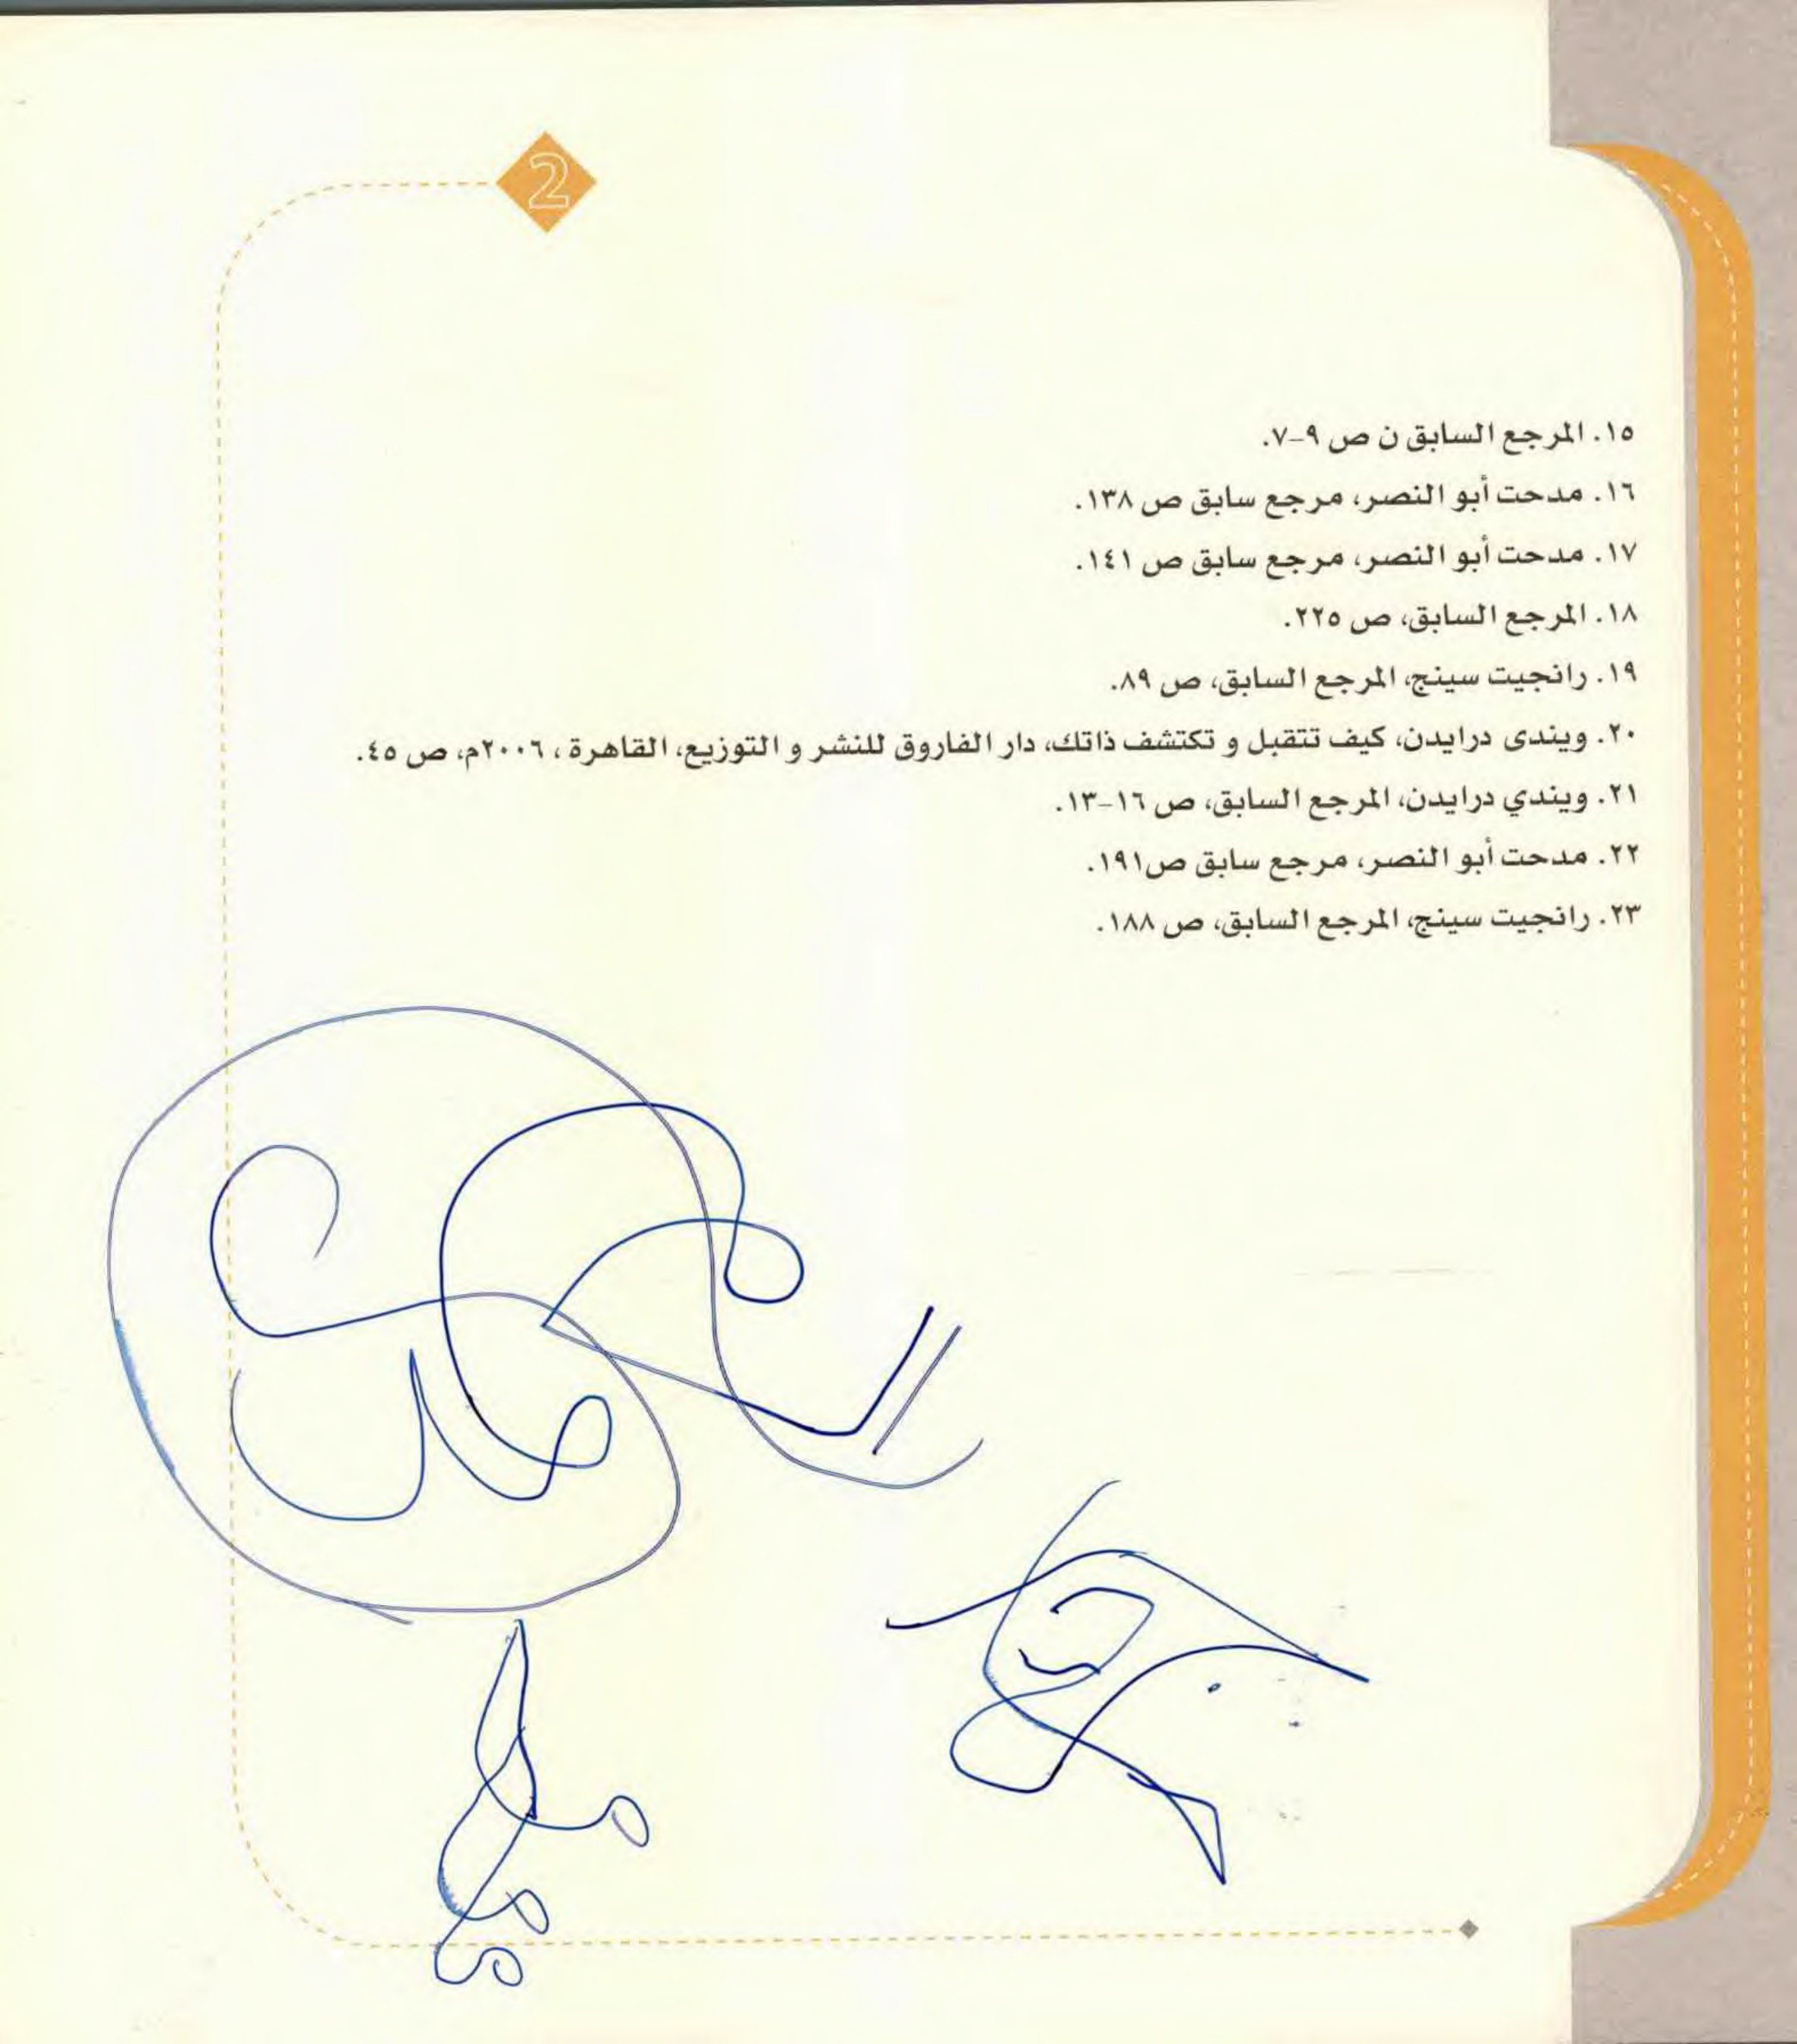 2
١٥. المرجع السابق ن ص ٩-٧.
١٦. مدحت أبو النصر، مرجع سابق ص ١٣٨.
١٧. مدحت أبو النصر، مرجع سابق ص ١٤١.
١٨. المرجع السابق، ص ٢٢٥.
١٩. رانجيت سينج، المرجع السابق، ص ٨٩.
٢٠. ويندى درايدن، كيف تتقبل و تكتشف ذاتك، دار الفاروق للنشر و التوزيع، القاهرة ، ٢٠٠٦م، ص ٤٥.
٢١. ويندي درايدن، المرجع السابق، ص ١٦-١٣.
٢٢. مدحت أبو النصر، مرجع سابق ص١٩١.
٢٣. رانجيت سينج، المرجع السابق، ص ١٨٨.